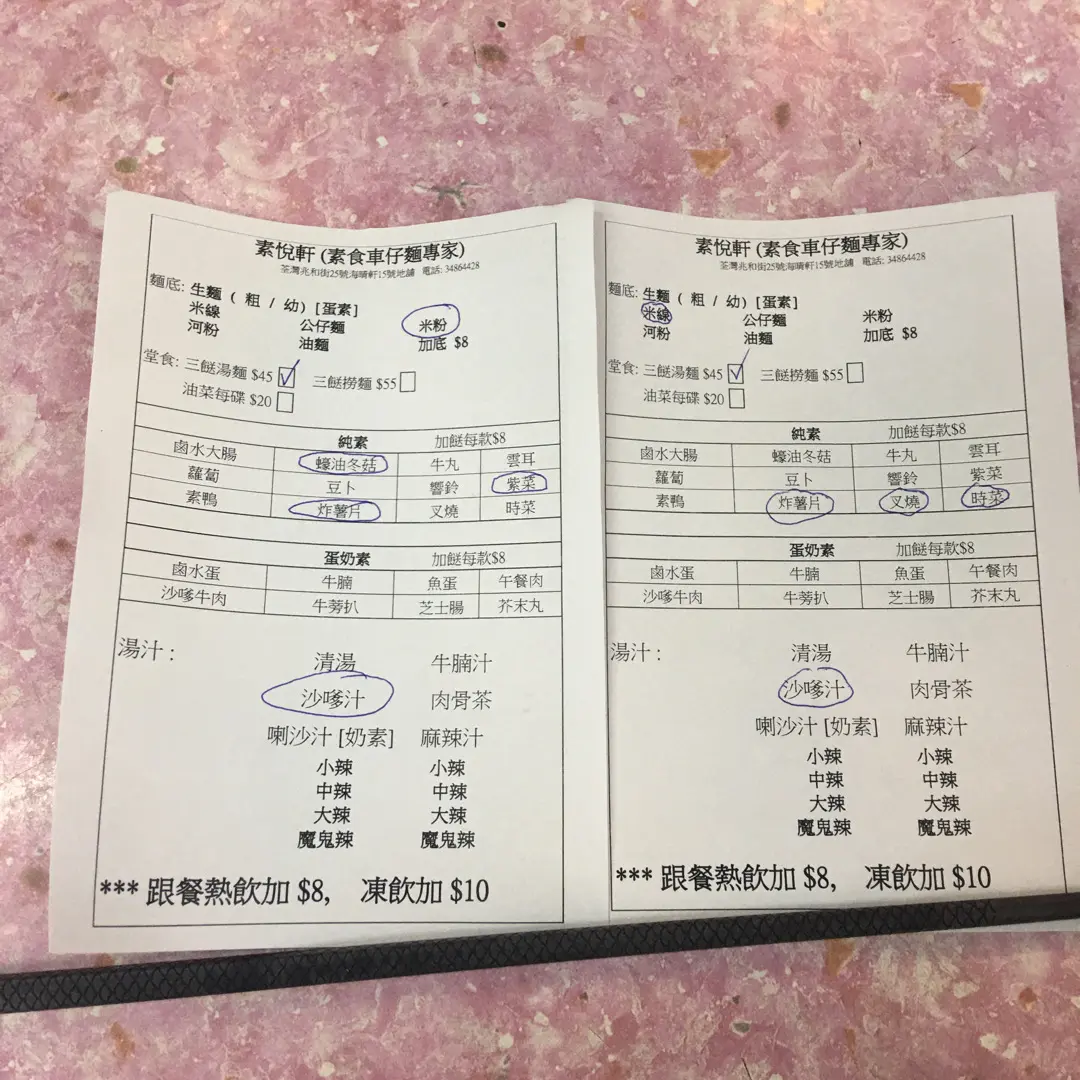 素悅軒 (素食車仔麵專家)
荃灣兆和街25號海晴軒15號地舖 電話: 34864428
麵底: 生麵 ( 粗 / 幼) [蛋素]
米線 公仔麵 米粉
河粉 油麵 加底 $8
堂食: 三餸湯麵 $45 三餸撈麵 $55
油菜每碟 $20
純素 加餸每款$8
鹵水大腸 蠔油冬菇 牛丸 雲耳
蘿蔔 豆卜 響鈴 紫菜
素鴨 炸薯片 叉燒 時菜
蛋奶素 加餸每款$8
鹵水蛋 牛腩 魚蛋 午餐肉
沙嗲牛肉 牛蒡扒 芝士腸 芥末丸
湯汁 :
清湯 牛腩汁
沙嗲汁 肉骨茶
喇沙汁 [奶素] 麻辣汁
小辣 小辣
中辣 中辣
大辣 大辣
魔鬼辣 魔鬼辣
*** 跟餐熱飲加 $8, 凍飲加 $10
素悅軒 (素食車仔麵專家)
荃灣兆和街25號海晴軒15號地舖 電話: 34864428
麵底: 生麵 ( 粗 / 幼) [蛋素]
米線 公仔麵 米粉
河粉 油麵 加底 $8
堂食: 三餸湯麵 $45 三餸撈麵 $55
油菜每碟 $20
純素 加餸每款$8
鹵水大腸 蠔油冬菇 牛丸 雲耳
蘿蔔 豆卜 響鈴 紫菜
素鴨 炸薯片 叉燒 時菜
蛋奶素 加餸每款$8
鹵水蛋 牛腩 魚蛋 午餐肉
沙嗲牛肉 牛蒡扒 芝士腸 芥末丸
湯汁 :
清湯 牛腩汁
沙嗲汁 肉骨茶
喇沙汁 [奶素] 麻辣汁
小辣 小辣
中辣 中辣
大辣 大辣
魔鬼辣 魔鬼辣
*** 跟餐熱飲加 $8, 凍飲加 $10